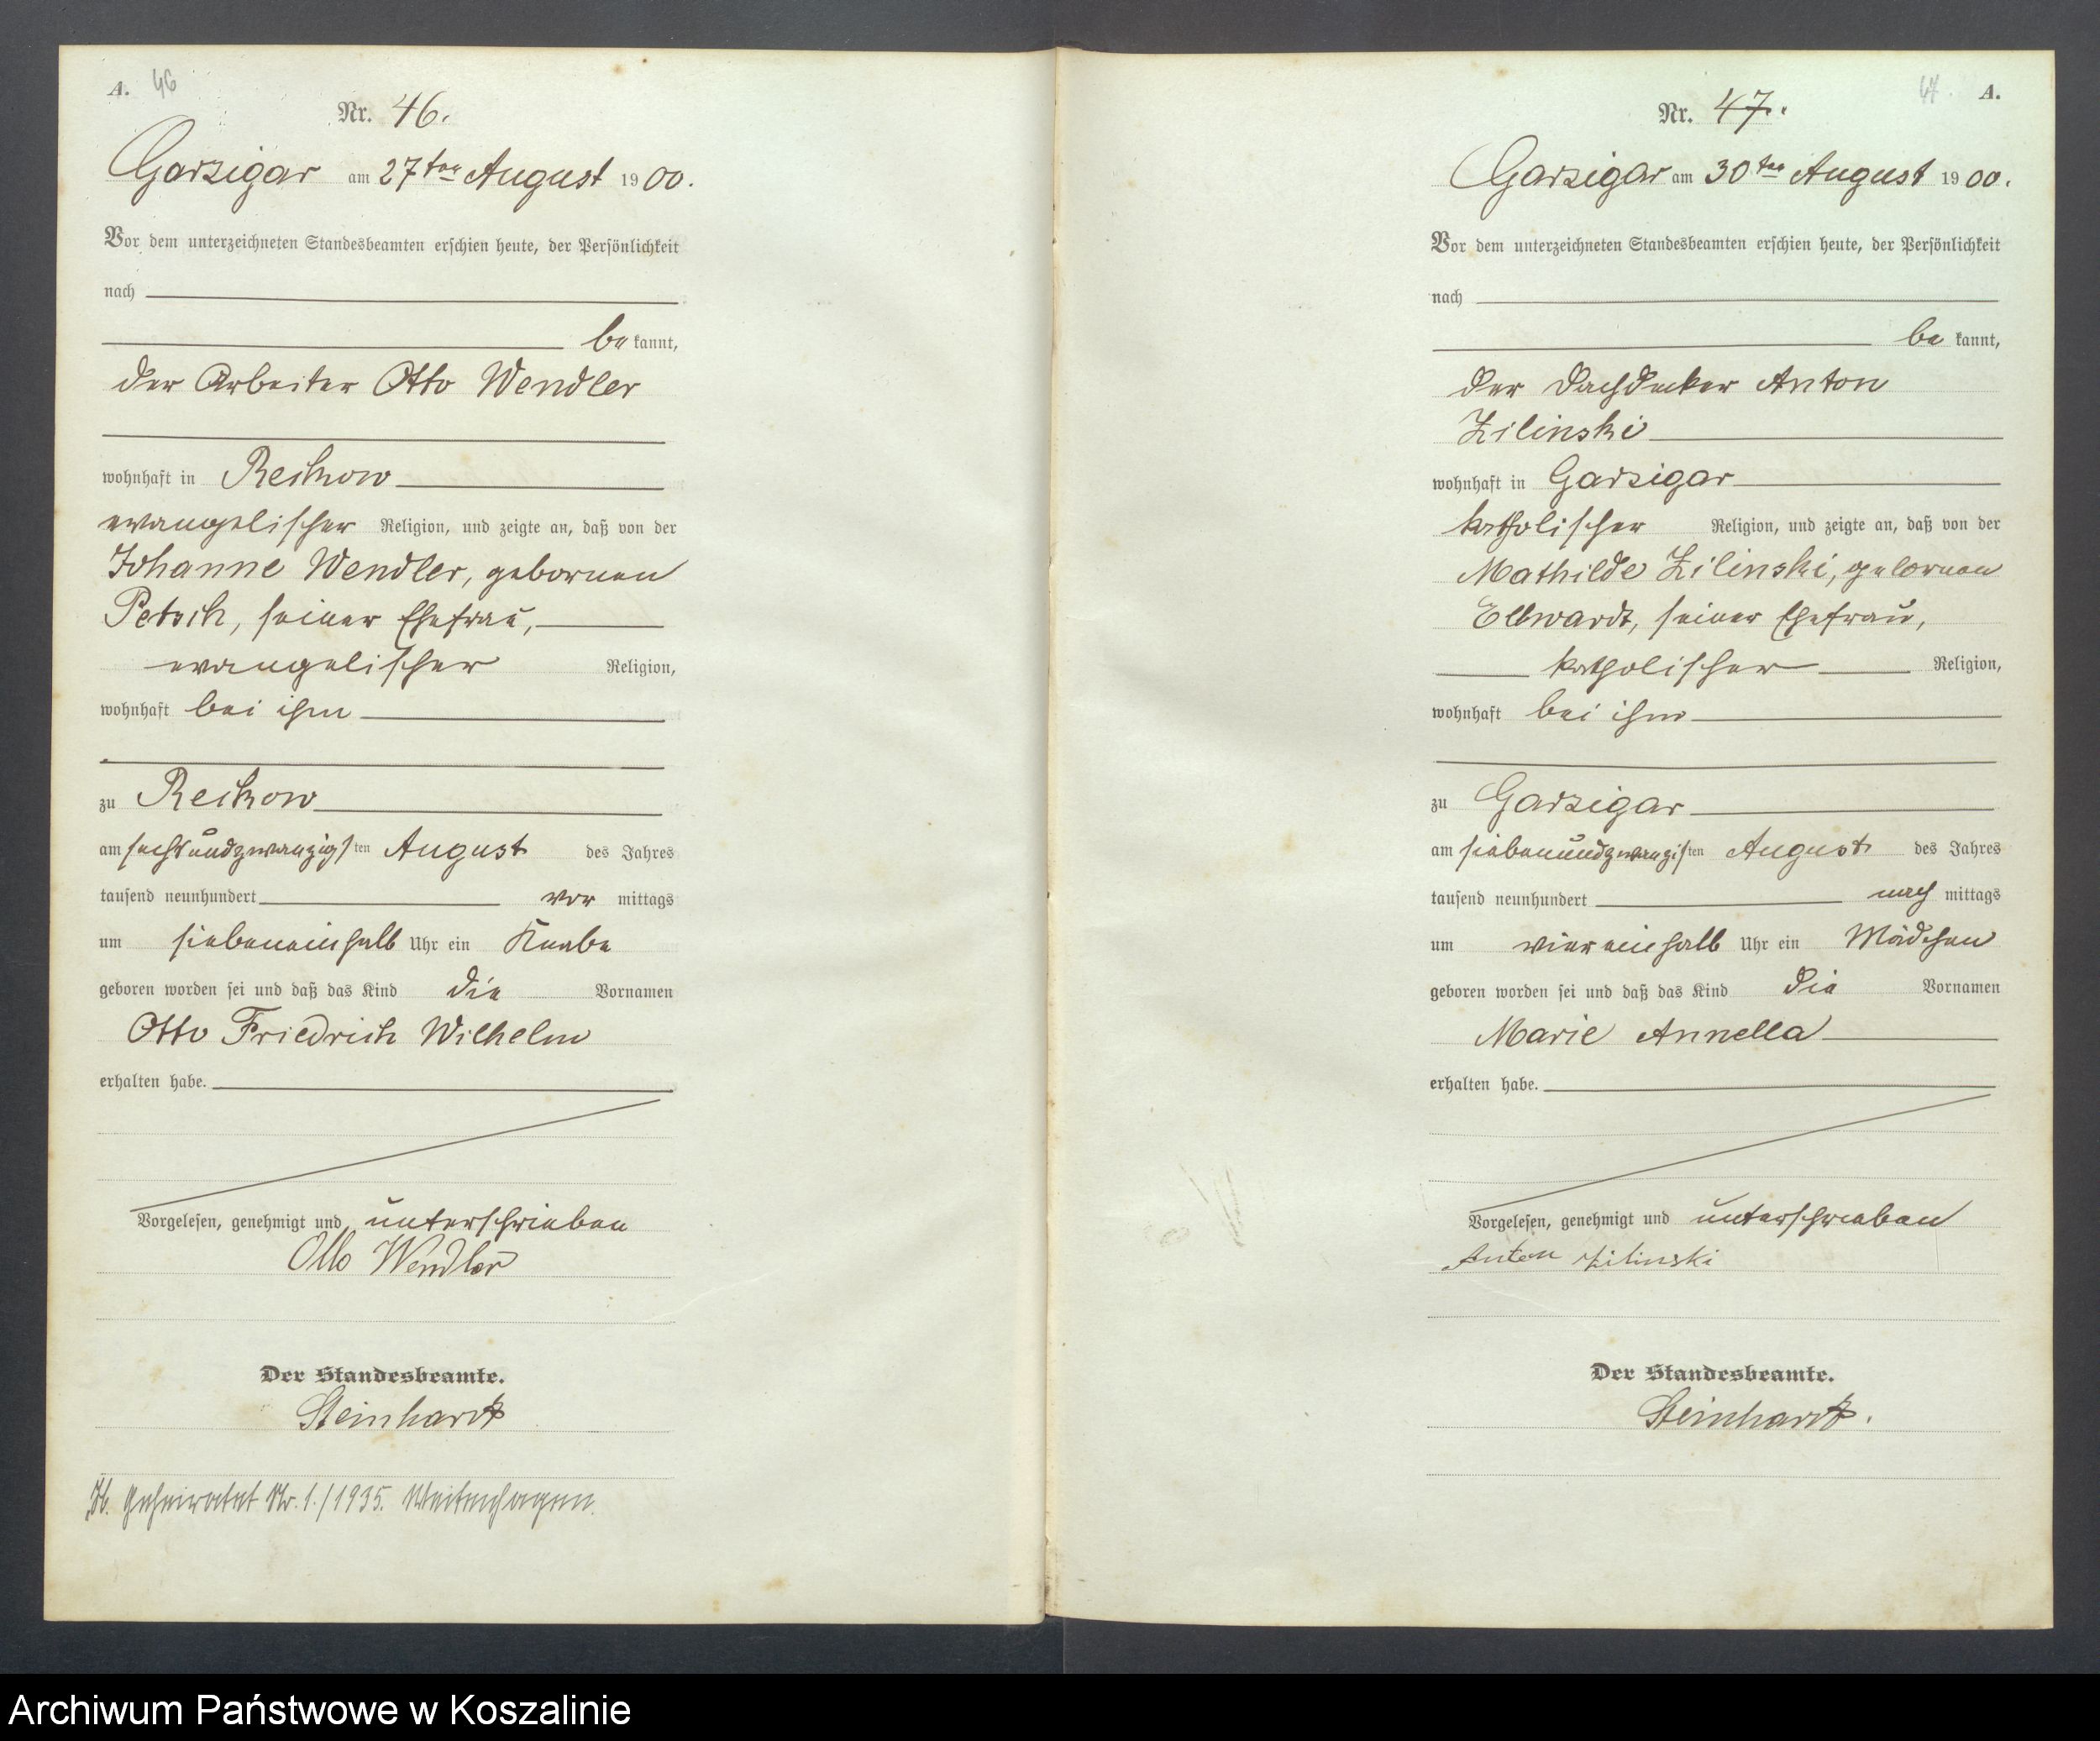 A. 46
Nr. 46.
Garzigar am 27ten August 1900.
Vor dem unterzeichneten Standesbeamten erschien heute, der Persönlichkeit
nach
be kannt,
der Arbeiter Otto Wendler
wohnhaft in Reckow
evangelischer Religion, und zeigte an, daß von der
Johanne Wendler, gebornen
Petsch, seiner Ehefrau,
evangelischer Religion,
wohnhaft bei ihm
zu Reckow
am sechsundzwanzigsten August des Jahres
tausend neunhundert vor mittags
um siebeneinhalb Uhr ein Knabe
geboren worden sei und daß das Kind die Vornamen
Otto Friedrich Wilhelm
erhalten habe.
Vorgelesen, genehmigt und unterschrieben
Otto Wendler
Der Standesbeamte.
Steinhardt
geheiratet Nr. 1./1935. Weitenhagen.
47. A.
Nr. 47.
Garzigar am 30ten August 1900.
Vor dem unterzeichneten Standesbeamten erschien heute, der Persönlichkeit
nach
be kannt,
der Dachdecker Anton
Zilinski
wohnhaft in Garzigar
katholischer Religion, und zeigte an, daß von der
Mathilde Zilinski, gebornen
Ellwardt, seiner Ehefrau,
katholischer Religion,
wohnhaft bei ihm
zu Garzigar
am siebenundzwanzigsten August des Jahres
tausend neunhundert nach mittags
um viereinhalb Uhr ein Mädchen
geboren worden sei und daß das Kind die Vornamen
Marie Annella
erhalten habe.
Vorgelesen, genehmigt und unterschrieben
Anton Zilinski
Der Standesbeamte.
Steinhardt.
Archiwum Państwowe w Koszalinie